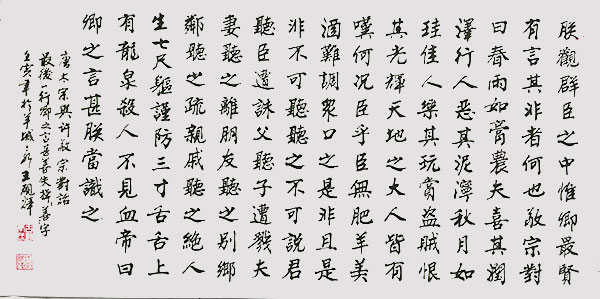 朕觀群臣之中惟卿最賢
有言其非者何也敬宗對
曰春雨如膏農夫喜其潤
澤行人惡其泥濘秋月如
珪佳人樂其玩賞盜賊恨
其光輝天地之大人皆有
嘆何況臣乎臣無肥羊美
酒難調眾口之是非且是
非不可聽聽之不可說君
聽臣遭誅父聽子遭戮夫
妻聽之離朋友聽之別鄉
鄰聽之疏親戚聽之絕人
生七尺軀謹防三寸舌舌上
有龍泉殺人不見血帝曰
卿之言甚朕當識之
唐太宗與許敬宗對話
最後一行卿之言甚善失掉善字
壬寅年於羊城